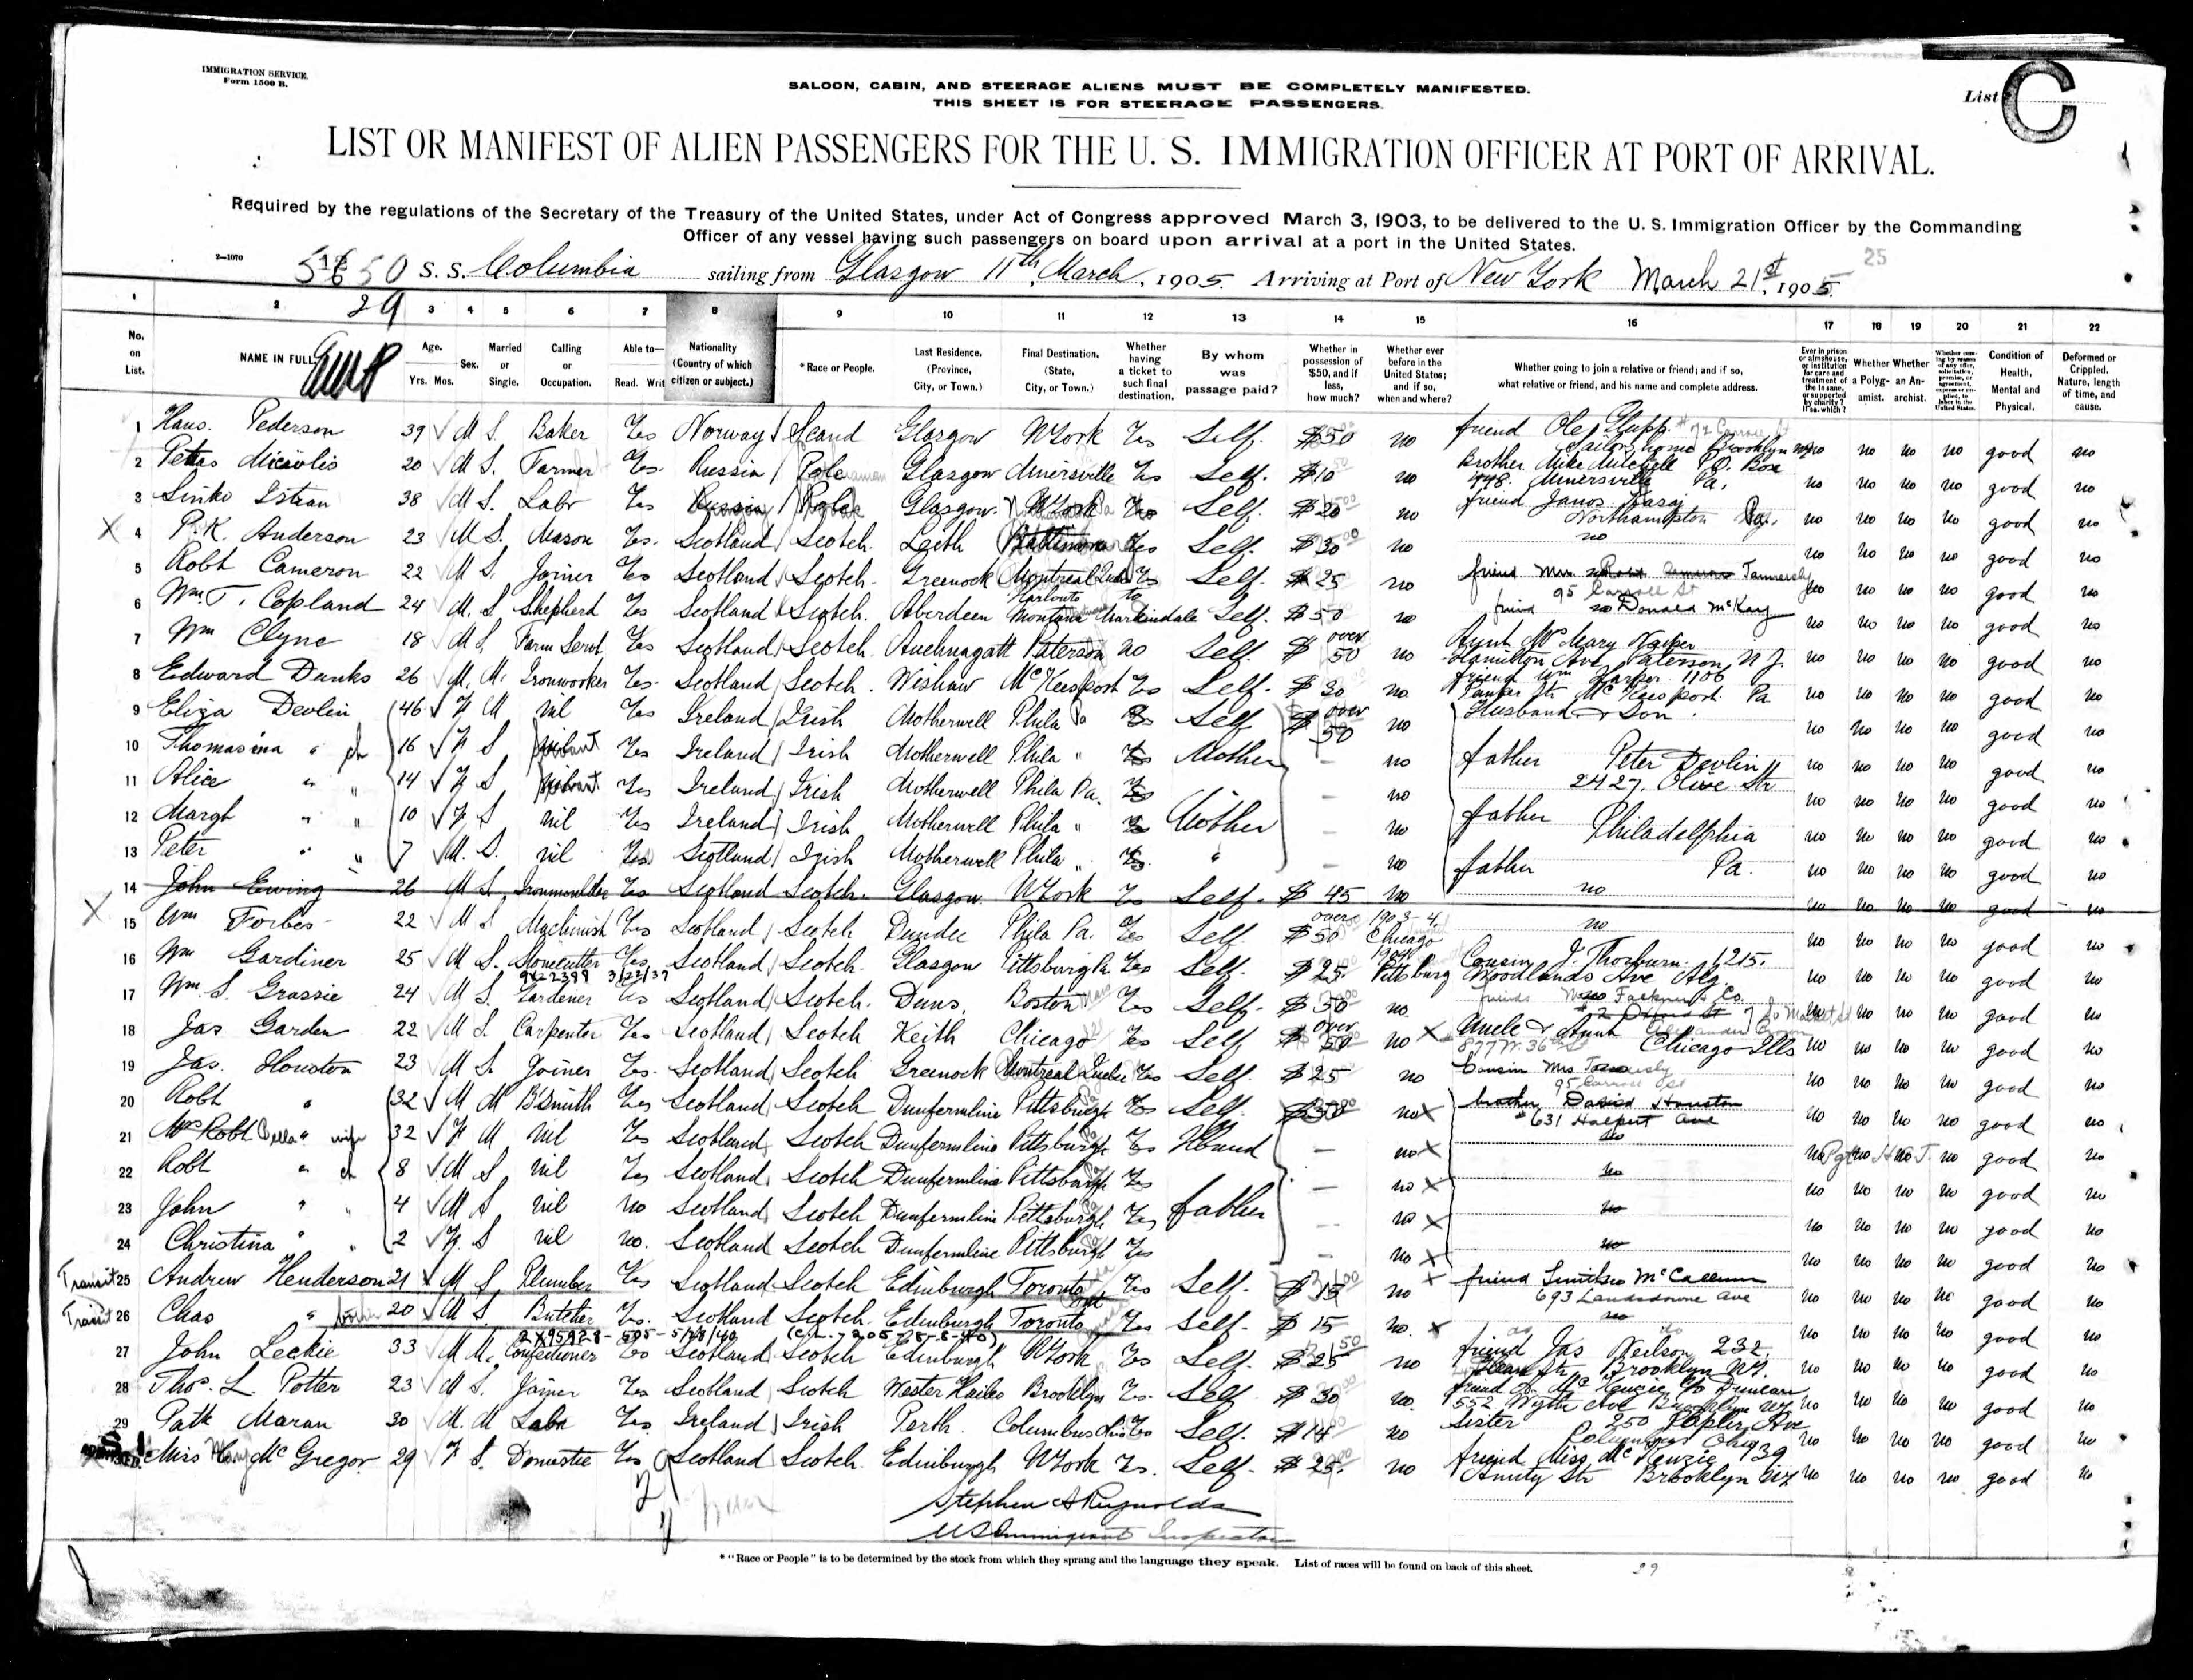 IMMIGRATION SERVICE.
Form 1500 B.
SALOON, CABIN, AND STEERAGE ALIENS MUST BE COMPLETELY MANIFESTED.
THIS SHEET IS FOR STEERAGE PASSENGERS.
List C
LIST OR MANIFEST OF ALIEN PASSENGERS FOR THE U. S. IMMIGRATION OFFICER AT PORT OF ARRIVAL.
Required by the regulations of the Secretary of the Treasury of the United States, under Act of Congress approved March 3, 1903, to be delivered to the U. S. Immigration Officer by the Commanding
Officer of any vessel having such passengers on board upon arrival at a port in the United States.
2-1070
S. S. Columbia sailing from Glasgow 11th March, 1905. Arriving at Port of New York March 21st, 1905. 25
29
1 2 3 4 5 6 7 8 9 10 11 12 13 14 15 16 17 18 19 20 21 22
No. on List. NAME IN FULL. Age. Yrs. Mos. Sex. Married or Single. Calling or Occupation. Able to— Read. Writ Nationality (Country of which citizen or subject.) *Race or People. Last Residence. (Province, City, or Town.) Final Destination. (State, City, or Town.) Whether having a ticket to such final destination. By whom was passage paid? Whether in possession of $50, and if less, how much? Whether ever before in the United States; and if so, when and where? Whether going to join a relative or friend; and if so, what relative or friend, and his name and complete address. Ever in prison or almshouse, or institution for care and treatment of the insane, or supported by charity? If so, which? Whether a Polygamist. Whether an Anarchist. Condition of Health, Mental and Physical. Deformed or Crippled. Nature, length of time, and cause.
1 Hans. Pederson 39 M S. Baker Yes Norway Scand Glasgow NYork Yes Self. $50 no friend Ole Sailors home Brooklyn no no no good no
2 Petras 20 M S. Farmer Yes. Russia Pole Glasgow Minersville Yes Self. $10 no Brother Mike Mitchell P.O. Box 448. Minersville Pa. no no no no good no
3 Sinko Istvan 38 M S. Labr Yes Russia Glasgow. NYork Self. $20 no friend Janos Northampton no no no no good no
X 4 P. K. Anderson 23 M S. Mason Yes. Scotland Scotch. Leith Baltimore Yes Self. $30 no no no no no no good no
5 Robt Cameron 22 M S. Joiner Yes Scotland Scotch. Greenock Montreal Yes Self. $25 no friend Mrs 95 Carroll St no no no good no
6 Wm. T. Copland 24 M. S Shepherd Yes Scotland Scotch. Aberdeen Montana Self. $50 no friend Donald McKay no no no no good no
7 Wm Clyne 18 M S, Farm Servt Yes Scotland Scotch Auchnagatt Paterson no Self. $ over 50 no Aunt Mary Napier Hamilton Ave Paterson N J. no no no no good no
8 Edward Danks 26 M. M. Ironworker Yes. Scotland Scotch. Wishaw McKeesport Yes Self. $30 no. friend Wm Harper 1106 McKeesport. Pa no no no no good no
9 Eliza Devlin 46 F M nil Yes Ireland Irish Motherwell Phila Pa Self $ over 50 no Husband & Son. no no no no good no
10 Thomasina " 16 F S Yes Ireland Irish Motherwell Phila " Mother — no father Peter Devlin no no no no good no
11 Alice " " 14 F S Yes Ireland Irish Motherwell Phila Pa. — no 2427. Olive Str no no no no good no
12 Margt " " 10 F S nil Yes Ireland Irish Motherwell Phila " Mother — no father Philadelphia no no no no good no
13 Peter " " 7 M. S. nil Scotland Irish Motherwell Phila " " — no father Pa. no no no no good no
14 John Ewing 26 M S. Ironmoulder Yes Scotland Scotch. Glasgow. NYork Yes Self. $45 no no no no no no good no
X 15 Wm Forbes 22 M S Machinist Yes Scotland Scotch Dundee Phila Pa. Yes Self. over $50 1903-4. Chicago no no no no no good no
16 Wm Gardiner 25 M S. Stonecutter Yes. Scotland Scotch. Glasgow Pittsburg Pa. Yes Self. $25. Pittsburg Cousin J. Thorburn. 1215. Woodlands Ave Alg. no no no no good no
3/22/37
17 Wm. S. Grassie 24 M S. Gardener Yes Scotland Scotch. Duns. Boston Yes Self. $50 no no no no good no
18 Jas Garden 22 M S. Carpenter Yes Scotland Scotch Keith Chicago Yes Self $ over 50 no X Uncle & Aunt Chicago Ills no no no no good no
19 Jas. Houston 23 M S. Joiner Yes. Scotland Scotch Greenock Montreal Quebec Yes Self. $25 no Cousin Mrs 95 Carroll St no no no no good no
20 Robt " 32 M M B'Smith Yes Scotland Scotch Dunfermline Pittsburgh Yes Self. no X brother David Houston 631 Ave no no no no good no
21 Mrs Robt Bella " wife 32 F M nil Yes Scotland Scotch Dunfermline Pittsburgh Yes Hbund — no X no no good no
22 Robt " 8 M S nil Yes Scotland Scotch Dunfermline Pittsburgh Yes — no X no no no no no good no
23 John " " 4 M S. nil no Scotland Scotch Dunfermline Pittsburgh Yes father — no X no no no no no good no
24 Christina " " 2 F. S nil no. Scotland Scotch Dunfermline Pittsburgh Yes — no X no no no no no good no
Transit 25 Andrew Henderson 21 M S Plumber Yes Scotland Scotch Edinburgh Toronto Yes Self. $15 no X friend McCallum 693 Landsdowne Ave no no no no good no
Transit 26 Chas " 20 M S Butcher Yes. Scotland Scotch. Edinburgh Toronto Yes Self. $15 no. X no no no no no good no
27 John Leckie 33 M M. Confectioner Yes Scotland Scotch Edinburgh NYork Yes Self. $25 no friend Jas Neilson 232 Str Brooklyn NY. no no no no good no
28 Thos. L. Potter 23 M S. Joiner Yes Scotland Scotch Wester Hailes Brooklyn Yes. Self $30 no. friend McKenzie c/o Duncan 552 Wythe Ave Brooklyn NY no no no no good no
29 Patk Maran 30 M. M Labr Yes. Ireland Irish Perth. Columbus Yes Self. $14 no Sister 250 Ave Columbus Ohio no no no no good no
Miss Mary McGregor. 29 F S. Domestic Yes Scotland Scotch. Edinburgh NYork Yes. Self. $25. no friend Miss McKenzie 139 Amity Str Brooklyn NY no no no no good no
Stephen A Reynolds
US Immigrant Inspector
* "Race or People" is to be determined by the stock from which they sprang and the language they speak. List of races will be found on back of this sheet.
29